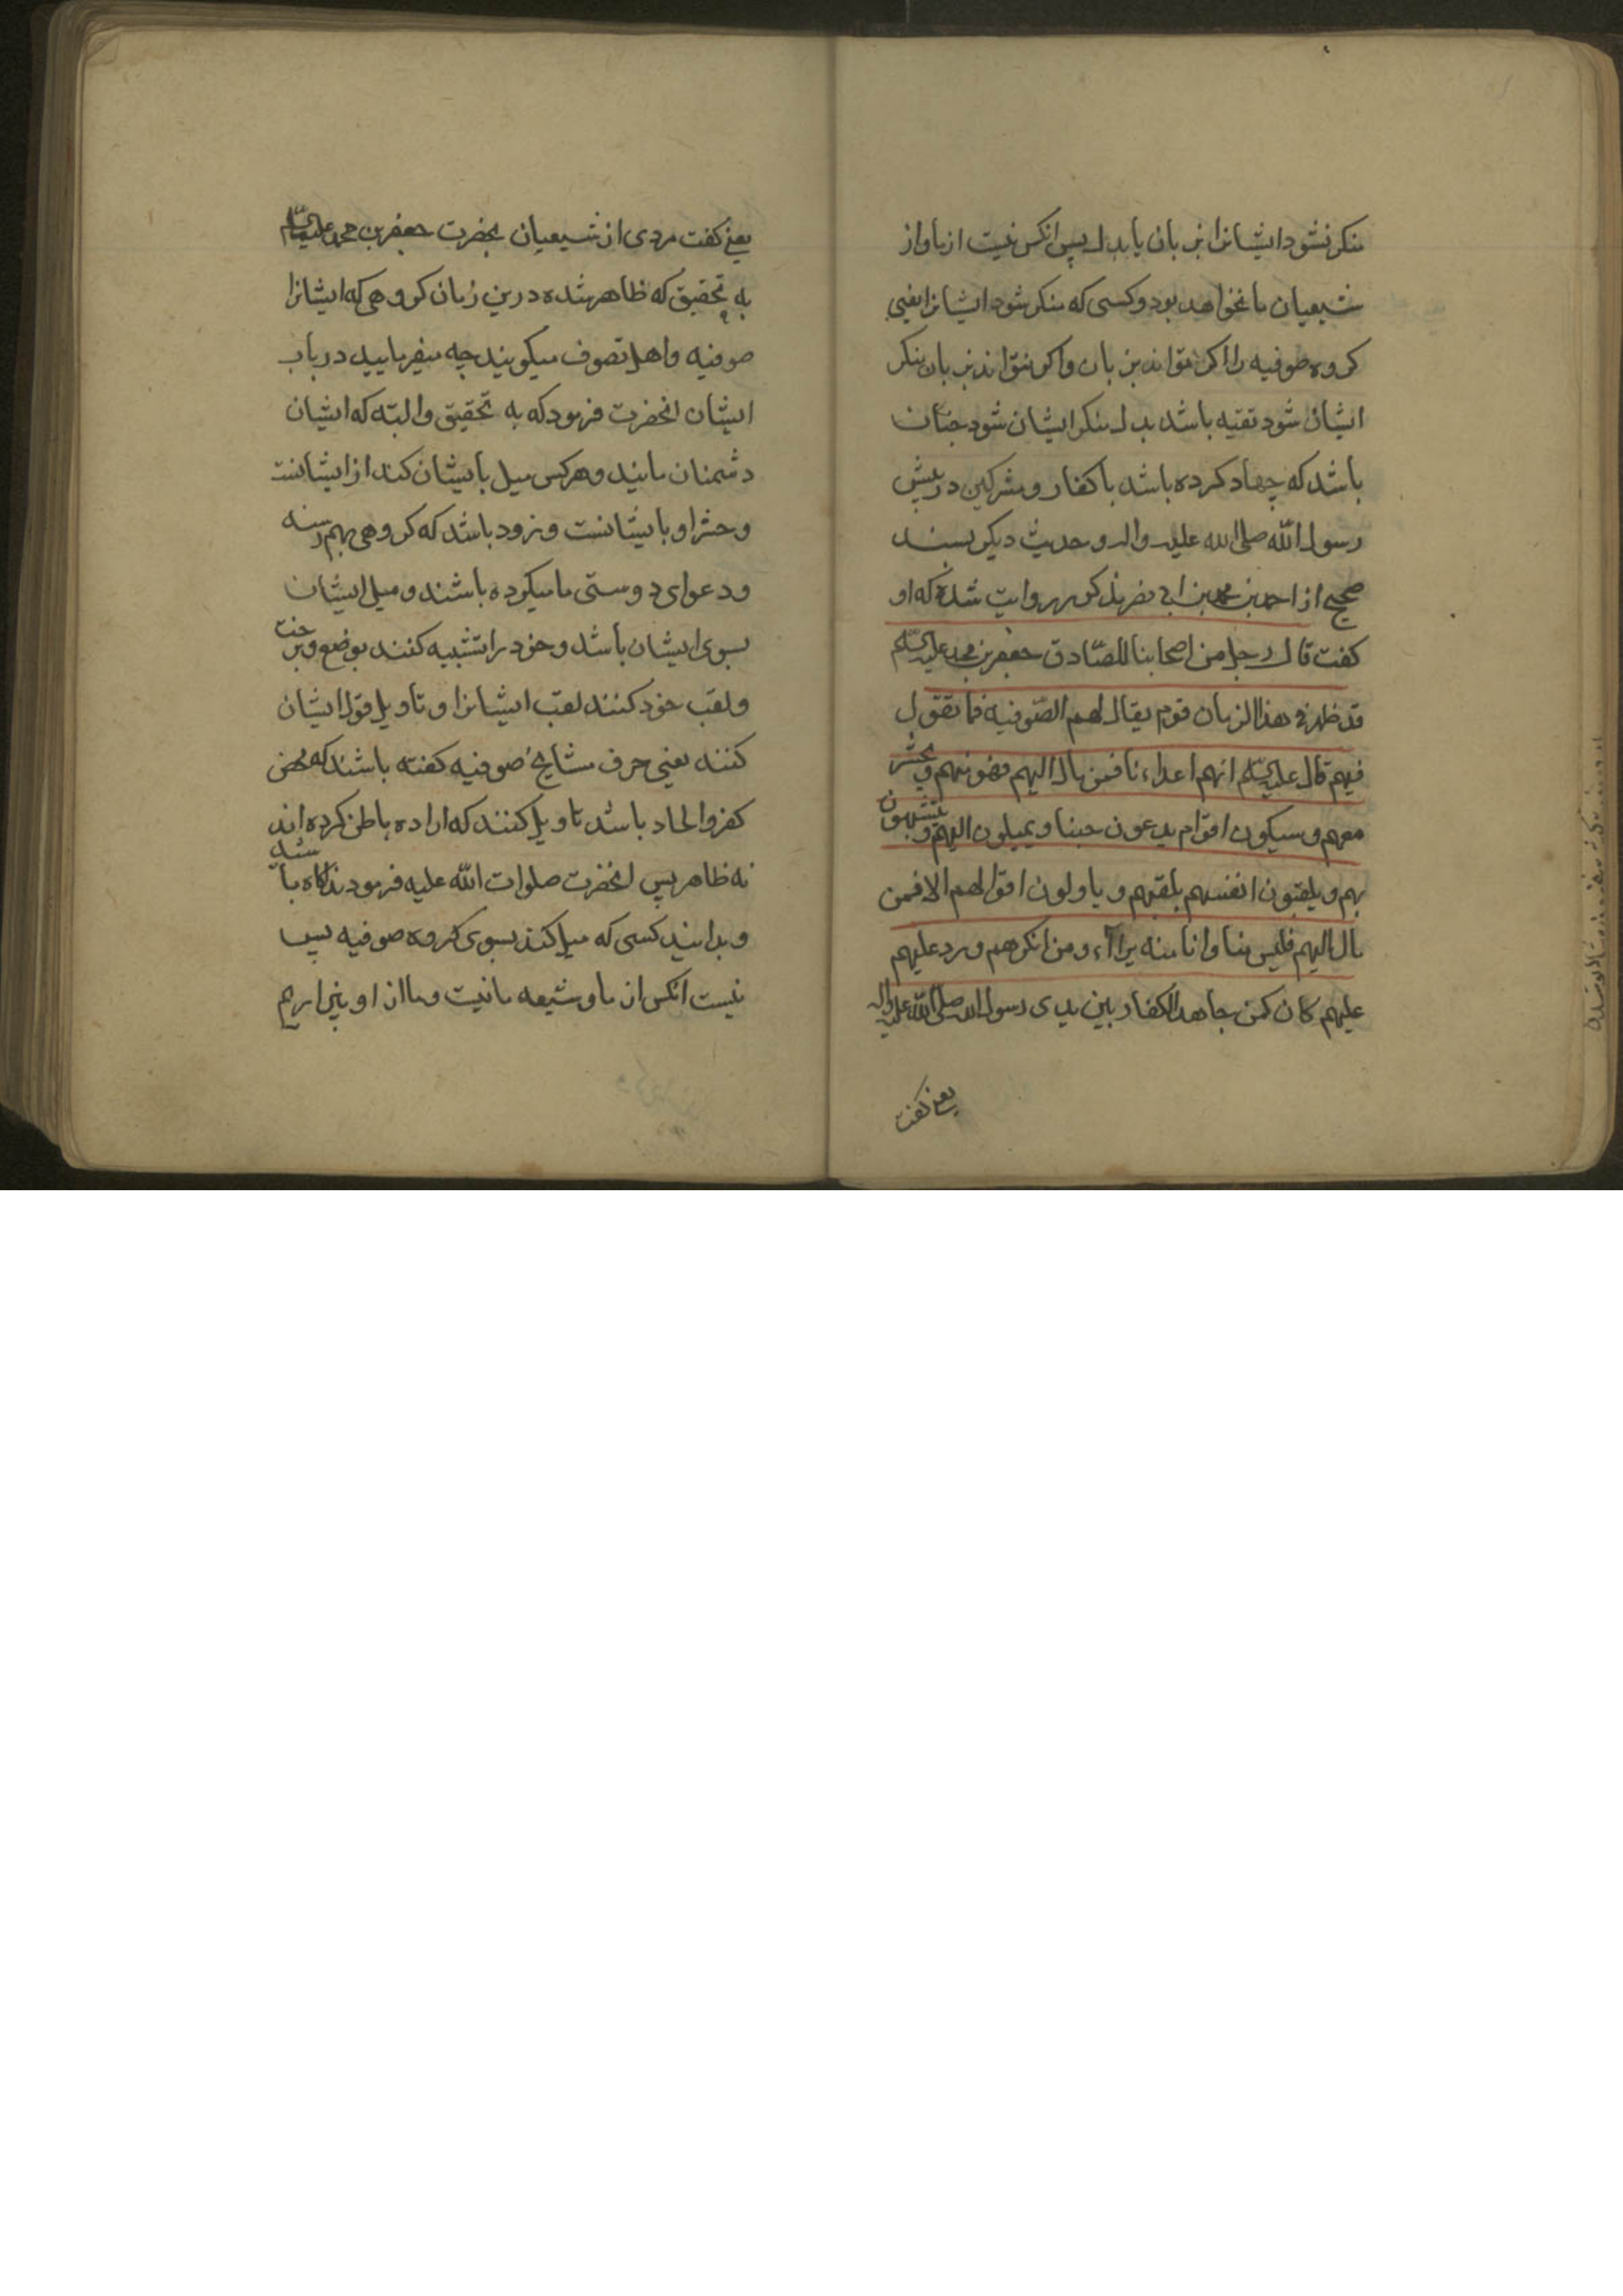 منکر نشود ایشانرا بزبان یا بدل پس انکس نیست از ما و از
شیعیان ما نخواهد بود و کسی که منکر شود ایشانرا یعنی
کروه صوفیه را اکر تواند بزبان و اکر نتواند بزبان منکر
ایشان شود تقیه باشد بدل منکر ایشان شود چنان
باشد که جهاد کرده باشد با کفار و مشرکین در پیش
رسول الله صلی الله علیه واله و حدیث دیکر بسند
صحیح از احمد بن محمد بن ابی نصر مذکور روایت شده که او
کفت قال رجل من اصحابنا للصّادق جعفر بن محمد علیه السلم
قد ظهر فی هذا الزمان قوم یقال لهم الصّوفیه فما تقول
فیهم قال علیه السلم انهم اعداءنا فمن مال الیهم فهو منهم و یحشر
معهم و سیکون اقوام یدعون حبنا و یمیلون الیهم و یتشبهون
بهم و یلقبون انفسهم بلقبهم و یاولون اقوالهم الا فمن
مال الیهم فلیس منا و انا منه براآء و من انکرهم و رد علیهم
علیهم کان کمن جاهد الکفار بین یدی رسول الله صلی الله علیه واله
یعنی کفت
یعنی کفت مردی از شیعیان بحضرت جعفر بن محمد علیه السلام
به تحقیق که ظاهر شده درین زمان کروهی که ایشانرا
صوفیه و اهل تصوف میکویند چه میفرمایید در باب
ایشان انحضرت فرمود که به تحقیق و البته که ایشان
دشمنان مایند و هر کس میل بایشان کند از ایشانست
و حشر او با یشانست و زود باشد که کروهی بهم رسند
و دعوای دوستی ما میکرده باشند و میل ایشان
بسوی ایشان باشد و خود را تشبیه کنند بوضع و
و لقب خود کنند لقب ایشانرا و تاویل قول ایشان
کنند یعنی حرف مشایخ صوفیه کفته باشند که محض
کفر و الحاد باشد تاویل کنند که اراده باطن کرده اند
نه ظاهر پس انحضرت صلوات الله علیه فرمودند اکاه باشید
و بدانید کسی که میل کند بسوی کروه صوفیه پس
نیست انکس از ما و شیعه ما نیست و ما از او بیزاریم